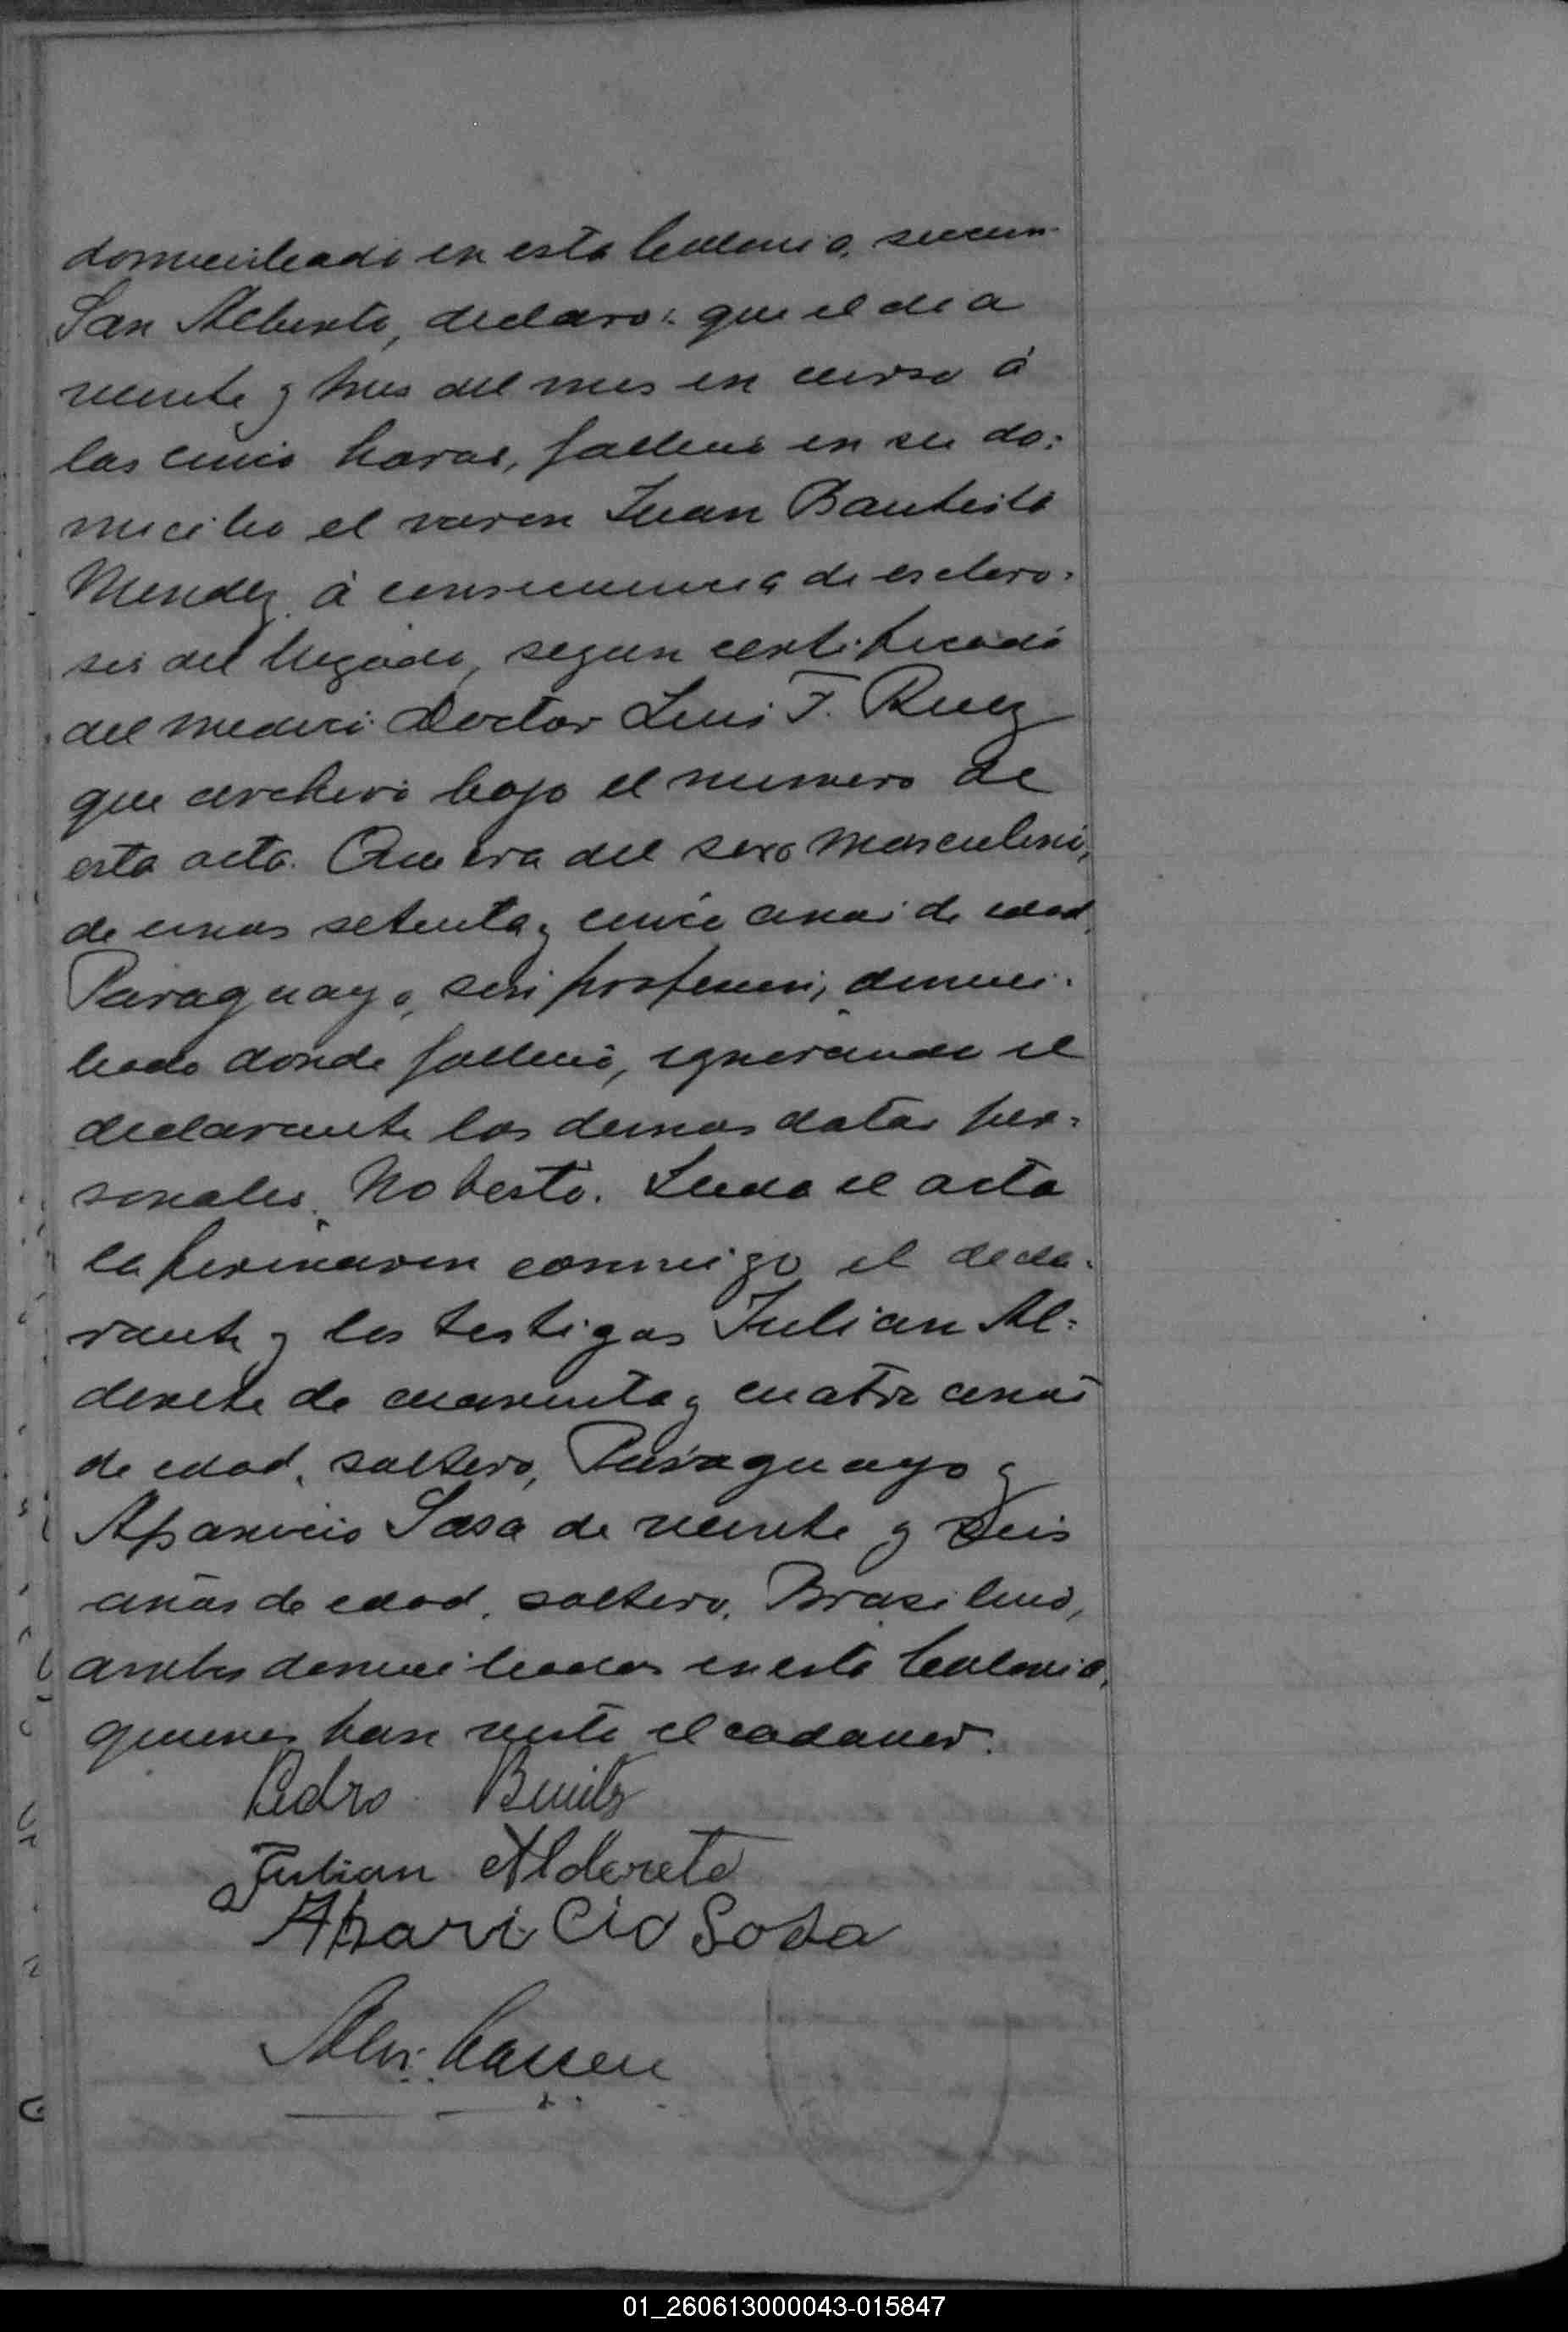 domiciliado en esta Colonia, seccion
San Alberto, declaró: que el dia
veinte y tres del mes en curso á
las cinco horas, falleció en su do=
micilio el varon Juan Bautista
Mendez á consecuencia de esclero=
sis del higado, segun certificado
del medico Doctor Luis F. Ruiz
que archivo bajo el numero de
esta acta. Que era del sexo masculino,
de unos setenta y cinco años de edad,
Paraguayo, sin profesion, domici=
liado donde falleció, ignorando el
declarante los demas datos per=
sonales. No testó. Leida el acta
la firmaron conmigo el decla=
rante y los testigos Julian Al=
derete de cuarenta y cuatro años
de edad, soltero, Paraguayo y
Aparicio Sosa de veinte y seis
años de edad, soltero, Brasilero,
ambos domiciliados en esta Colonia,
quienes han visto el cadaver.
Pedro Benitez
Julian Alderete
Aparicio Sosa
01_260613000043-015847